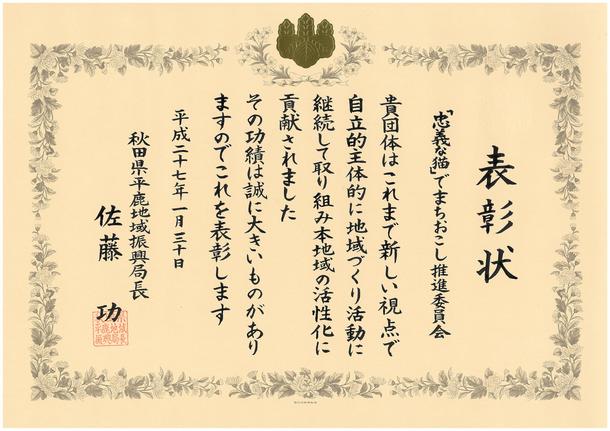 表彰状
「忠義な猫」でまちおこし推進委員会
貴団体はこれまで新しい視点で
自立的主体的に地域づくり活動に
継続して取り組み本地域の活性化に
貢献されました
その功績は誠に大きいものがあり
ますのでこれを表彰します
平成二十七年一月三十日
秋田県平鹿地域振興局長
佐藤功